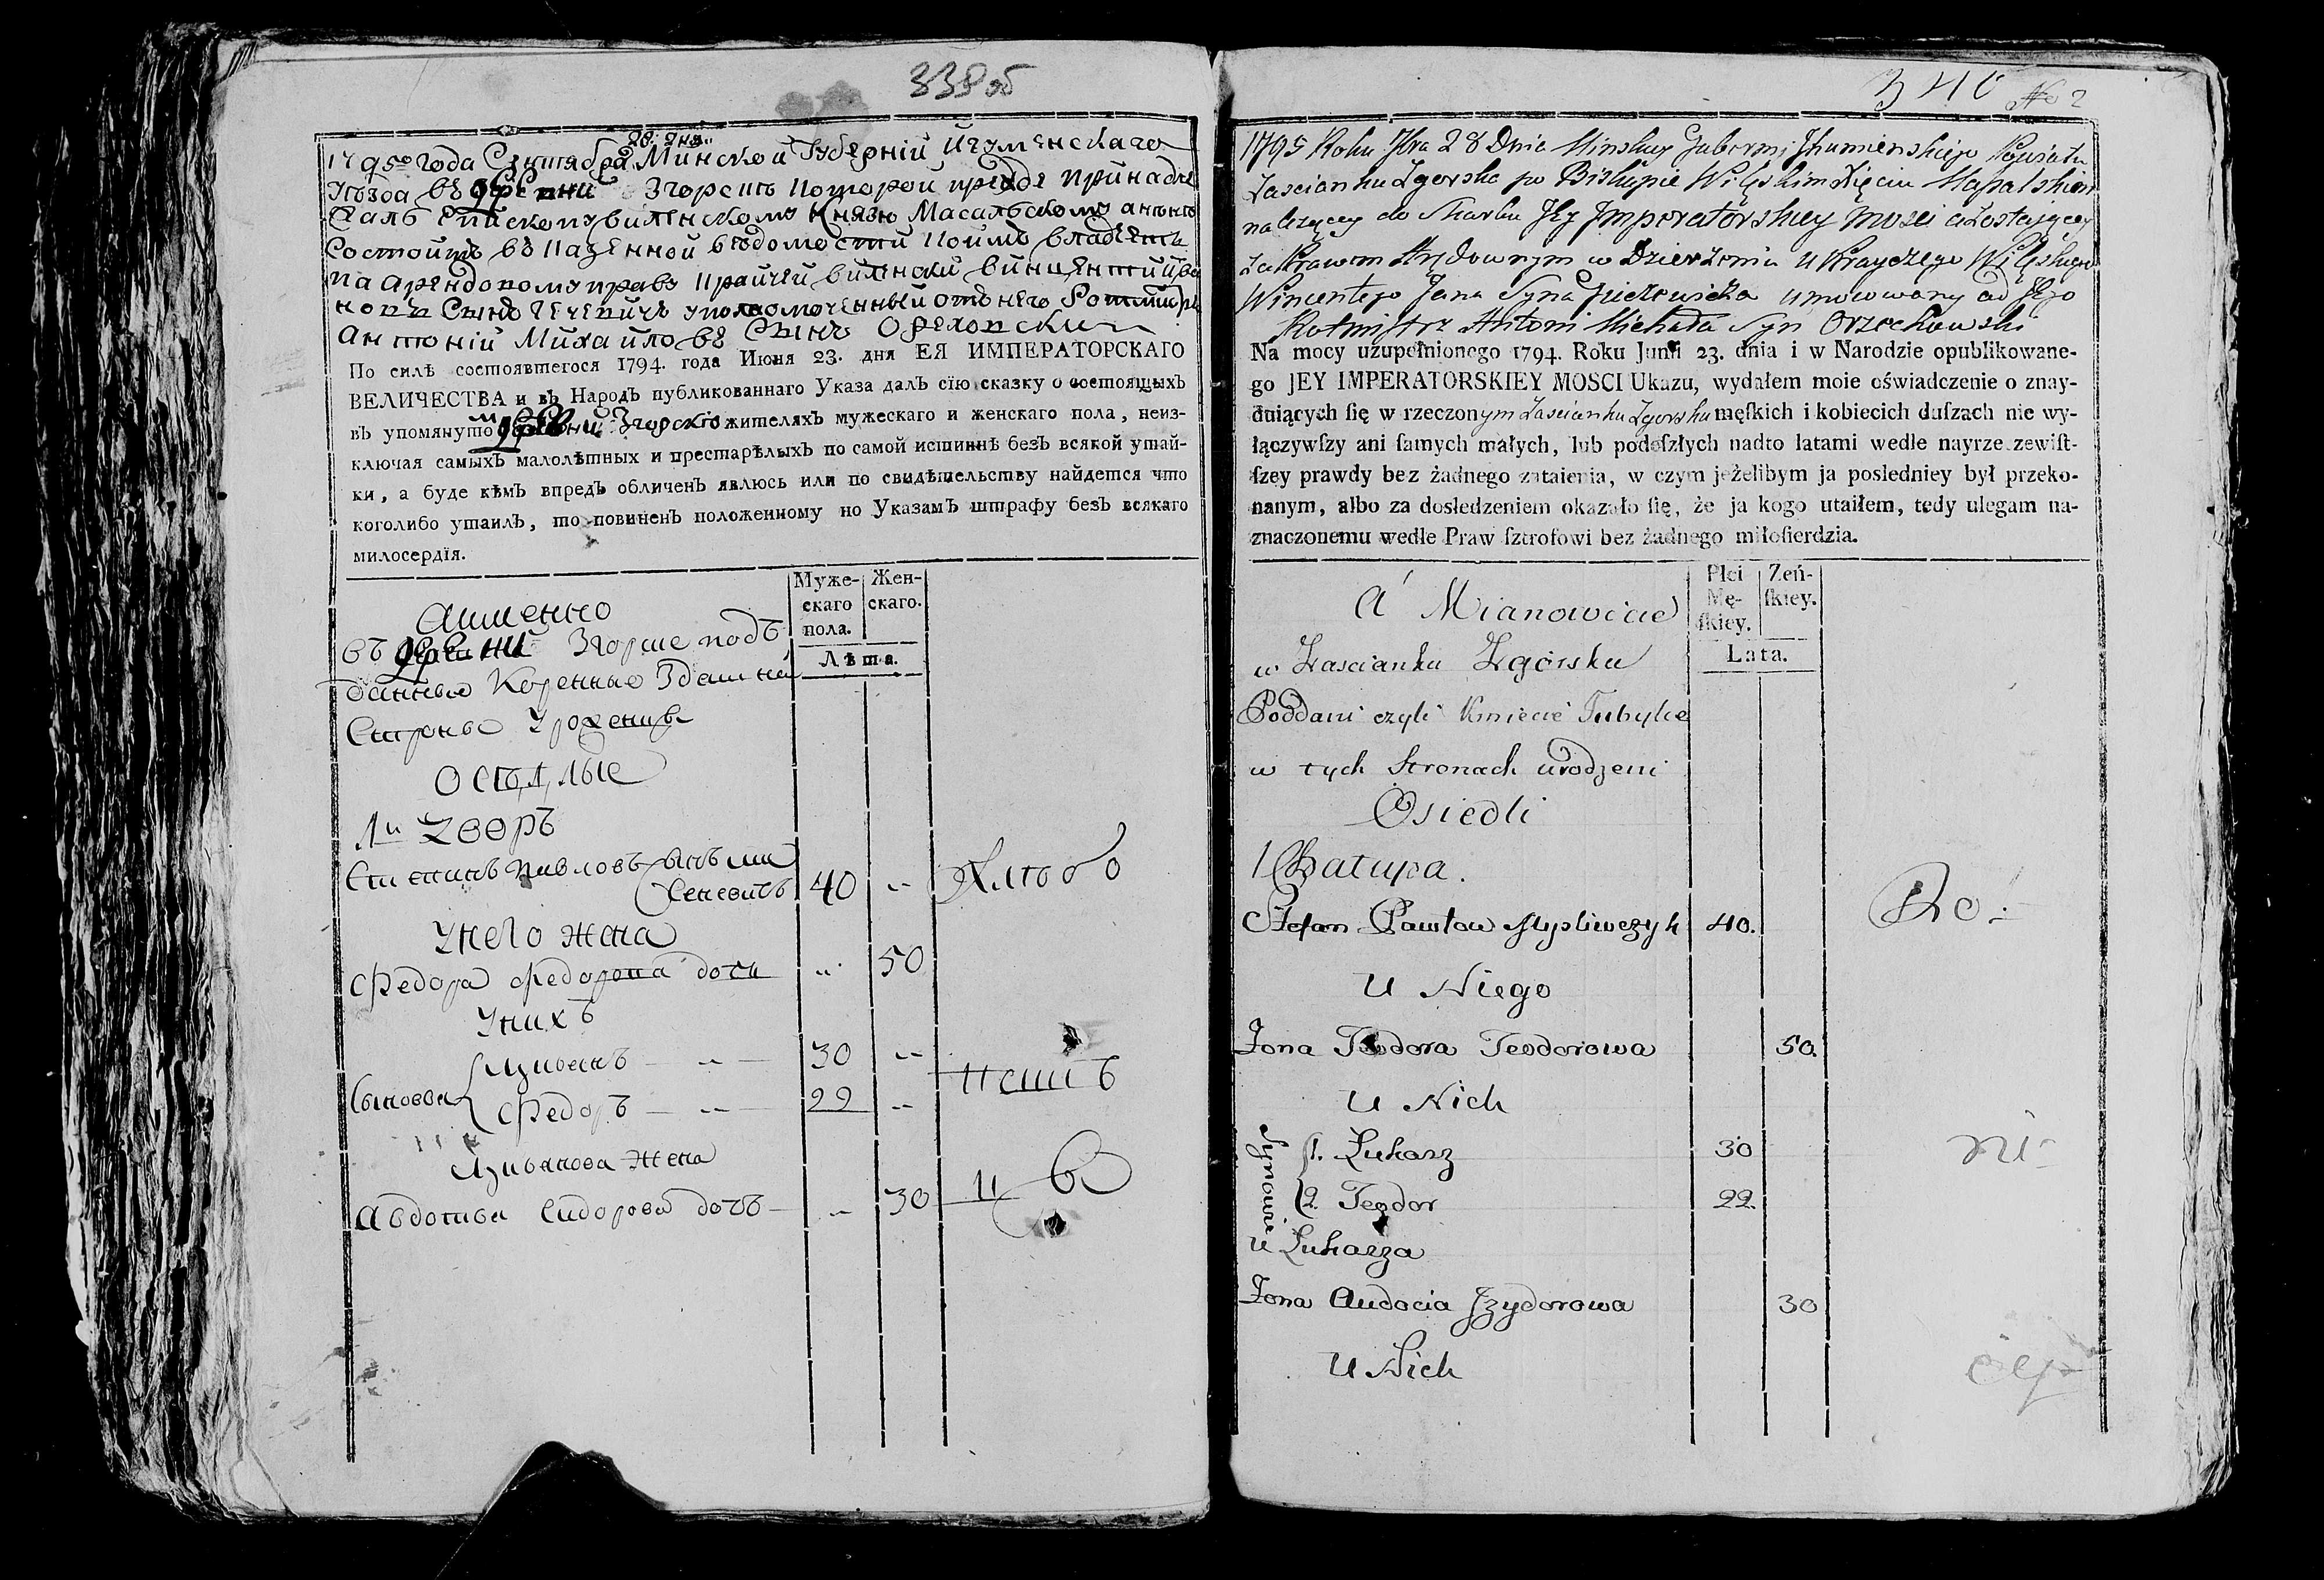 339 об
28. дня
1795го года Сентября Минской Губерніи Игуменскаго
Уезда въ деревни Згорскъ которой прежде принадле
жалъ Епископу виленскому Князю Масальскому а ныне
Состоитъ въ Казенной ведомости коимъ владѣетъ
на арендовому праву Крайчей виленски винцентий ива
новъ Сынъ уполномоченный отъ него Ротмистръ
Антоній Михайловъ Сынъ Ореховски
По силѣ состоявшегося 1794. года Июня 23. дня ЕЯ ИМПЕРАТОРСКАГО
ВЕЛИЧЕСТВА и въ Народъ публикованнаго Указа далъ сїю сказку о состоящыхъ
въ упомянутой деревни Згорскіе жителяхъ мужескаго и женскаго пола, неиз-
ключая самыхъ малолѣтных и престарѣлыхъ по самой истиннѣ безъ всякой утай-
ки, а буде кѣмъ впредь обличенъ явлюсь или по свидѣтельству найдется что
коголибо утаилъ, то повиненъ положенному по Указамъ штрафу безъ всякаго
милосердїя.
Муже- Жен-
скаго скаго.
пола.
Лѣта.
Аименно
въ деревни Згорше подъ
данные Коренные Здешней
Стороны Уроженцы
Оселые
1й Дворъ
Степанъ Павловъ Сынъ
40
У него жена
Федора Федорова дочь 50
У нихъ
Сыновья
Лукьянъ 30
Федоръ 22
Лукьянова жена
Авдотья Сидорова дочь 30
340
No 2
1795 Roku 7bra 28 Dnia Minskiey Gubernij Jhumienskiego Powiatu
Zascianku Zgorska po Biskupie Wilęskim Xięciu Massalskim
należący do Skarbu Jey Jmperatorskiey Mosci a zostający
za Prawem Arędownym w Dzierżeniu u Krayczego Wilęskiego
Wincentego Jana Syna umocowany od Jego
Rotmistrz Antoni Michała Syn Orzechowski
Na mocy uzupełnionego 1794. Roku Junii 23. dnia i w Narodzie opublikowane-
go JEY IMPERATORSKIEY MOSCI Ukazu, wydałem moie oświadczenie o znay-
duiących ſię w rzeczonym Zascianku Zgorsku męſkich i kobiecich duſzach nie wy-
łączywſzy ani ſamych małych, lub podeſzłych nadto latami wedle nayrzetelnieyſt-
ſzey prawdy bez żadnego zataienia, w czym jeżelibym ja posledniey był przeko-
nanym, albo za dosledzeniem okazało ſię, że ja kogo utaiłem, tedy ulegam na-
znaczonemu wedle Praw ſztrofowi bez żadnego miłoſierdzia.
Płci Zeń-
Mę- ſkiey.
ſkiey.
Lata.
A Mianowicie
w Zascianku Zgorsku
Poddani czyli Kmiecie Tubylce
w tych Stronach urodzeni
Osiedli
1 Chatupa.
Stefan Pawłow Mysliwczyk 40.
U Niego
Żona Teodora Teodorowa 50.
U Nich
Synowie
1. Łukasz 30
2. Teodor 22.
U Łukasza
Żona Audocia Jzydorowa 30
U Nich